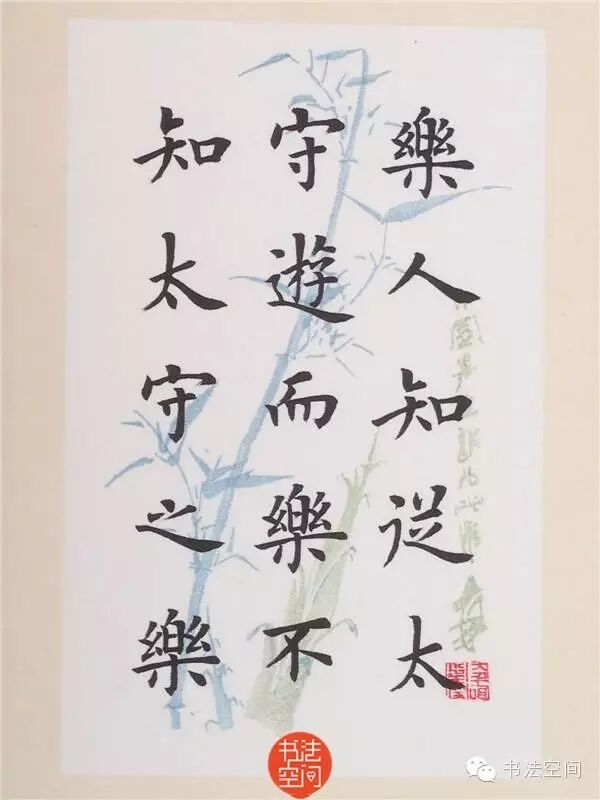 樂人知從太
守遊而樂不
知太守之樂
书法空间
书法空间